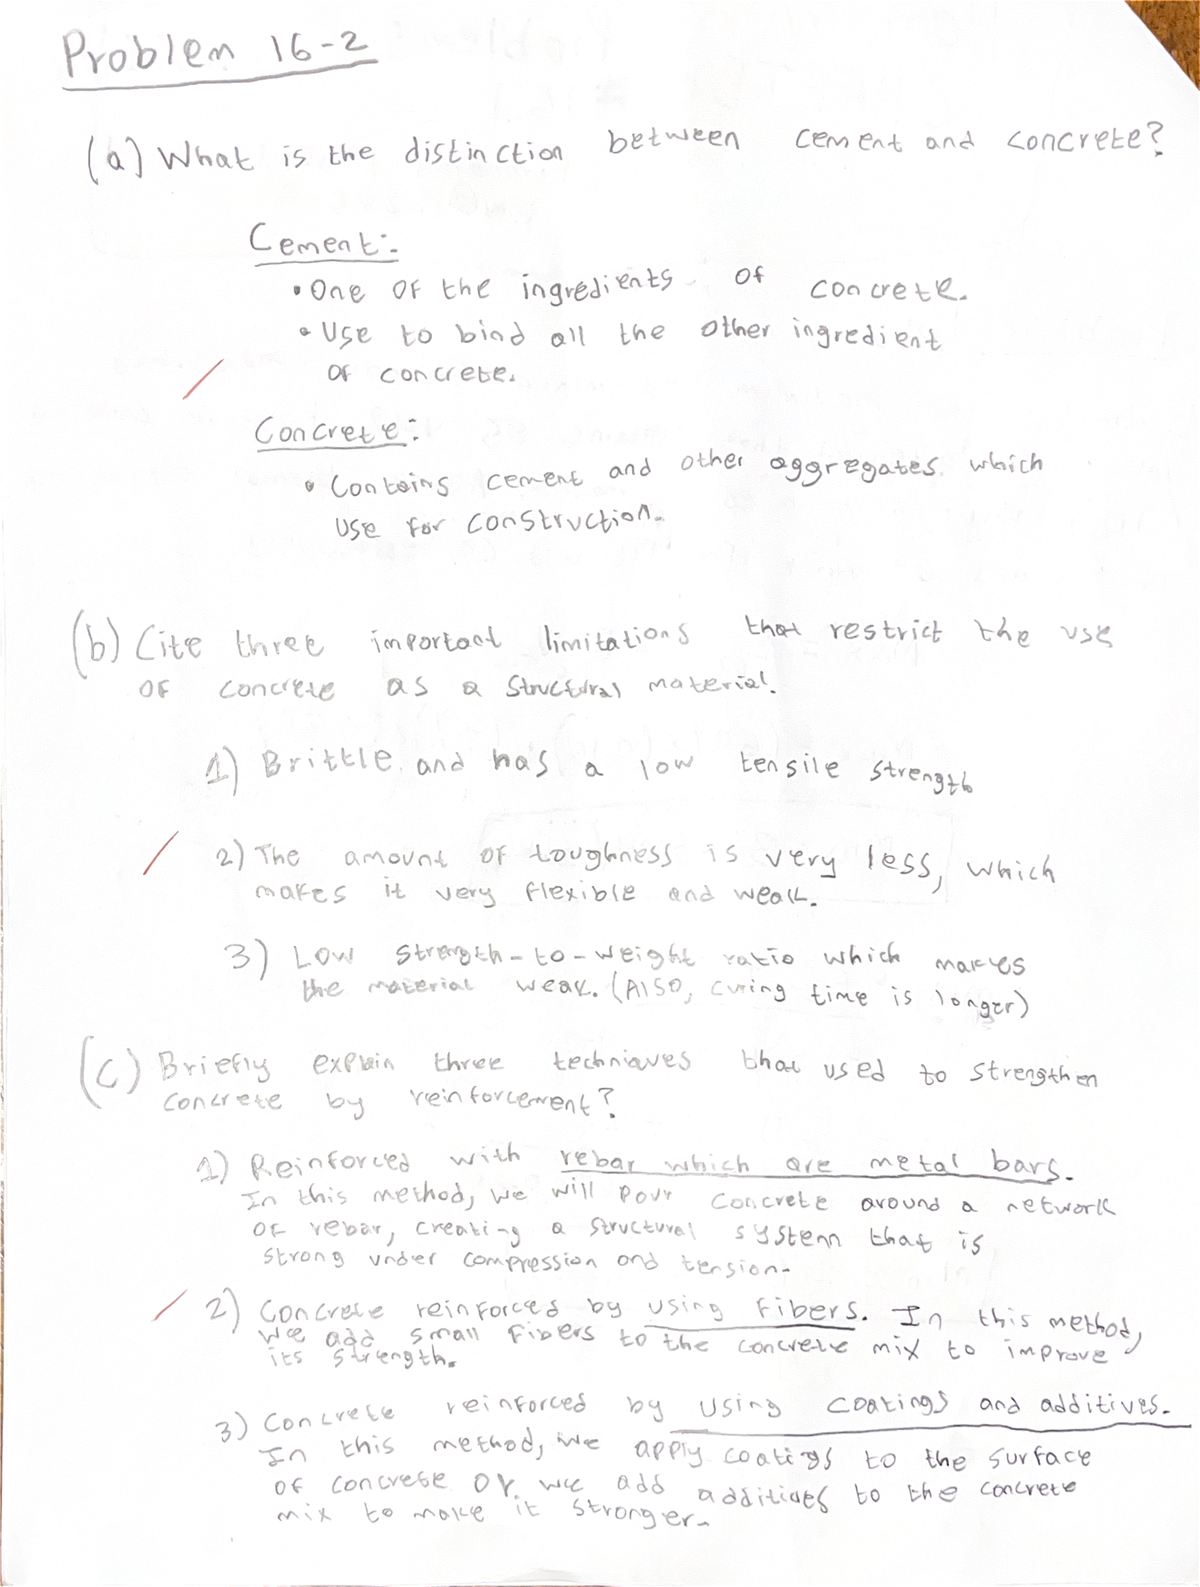 Problem 16-2
(a) What is the distinction between cement and concrete?
Cement:-
• One of the ingredients of concrete.
• Use to bind all the other ingredient
of concrete.
Concrete:
• Contains cement and other aggregates which
use for construction.
(b) Cite three important limitations that restrict the use
of concrete as a structural material.
1) Brittle and has a low tensile strength
2) The amount of toughness is very less, which
makes it very flexible and weak.
3) Low strength-to-weight ratio which makes
the material weak. (Also, curing time is longer)
(c) Briefly explain three techniques that used to strengthen
concrete by reinforcement?
1) Reinforced with rebar which are metal bars.
In this method, we will pour concrete around a network
of rebar, creating a structural system that is
strong under compression and tension.
2) Concrete reinforced by using fibers. In this method,
we add small fibers to the concrete mix to improve
its strength.
3) Concrete reinforced by using coatings and additives.
In this method, we apply coatings to the surface
of concrete or we add additives to the concrete
mix to make it stronger.